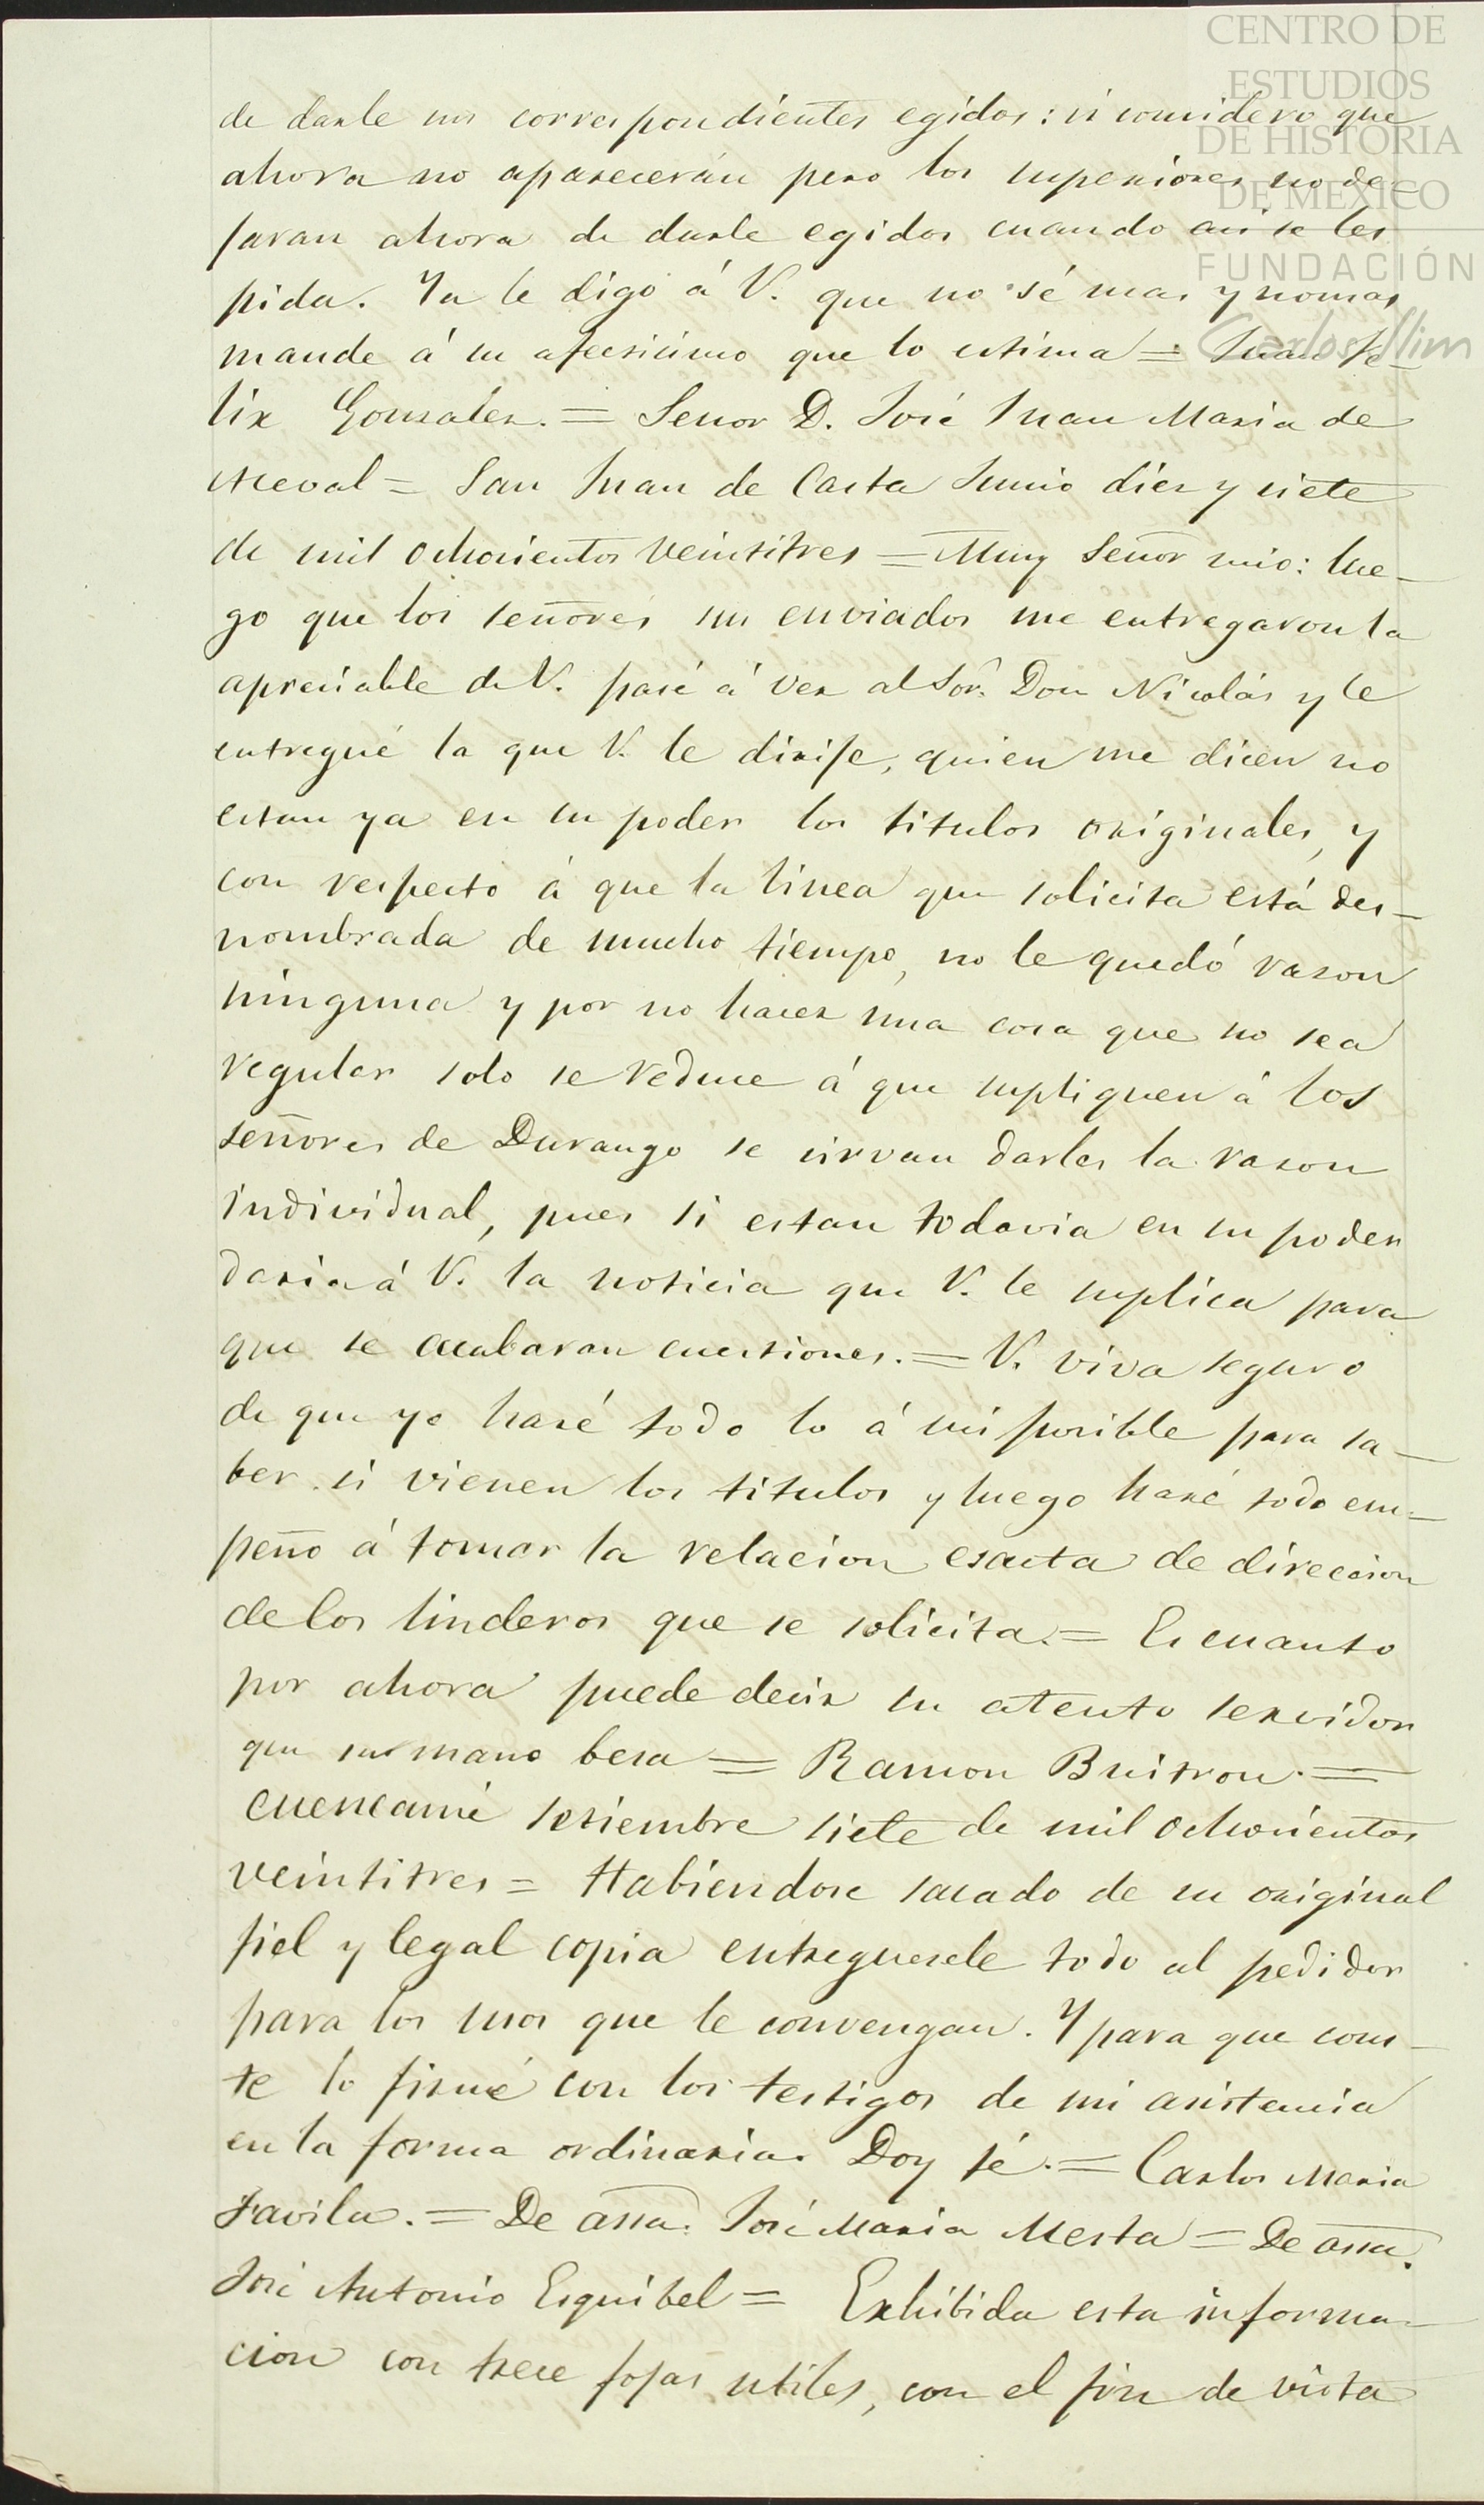 CENTRO DE
ESTUDIOS
DE HISTORIA
DE MÉXICO
FUNDACIÓN
Carlos Slim
de darle sus correspondientes egidos: si considero que
ahora no aparecerán pero los superiores no de-
jaran ahora de darle egidos cuando asi se les
pida. Ya le digo á V. que no sé mas y nomas
mande á su afecsisimo que lo estima = Juan Fe-
lix Gonzalez. = Señor D. José Juan Maria de
Aceval = San Juan de Casta Junio diez y siete
de mil ochocientos veintitres = Muy Señor mio: lue-
go que los señores sus enviados me entregaron la
apreciable de V. pasé á ver al Sor. Don Nicolás y le
entregué la que V. le dirije, quien me dicen no
estan ya en su poder los titulos originales, y
con respecto á que la linea que solicita está des-
nombrada de mucho tiempo, no le quedó razon
ninguna y por no hacer una cosa que no sea
regular solo se reduce á que supliquen á los
señores de Durango se sirvan darles la razon
individual, pues si estan todavia en su poder
daria á V. la noticia que V. le suplica para
que se acabaran cuestiones. = V. viva seguro
de que yo haré todo lo á mi posible para sa-
ber si vienen los titulos y luego haré todo em-
peño á tomar la relacion esacta de direccion
de los linderos que se solicita. = Es cuanto
por ahora puede decir su atento servidor
que su mano besa = Ramon Buitron. =
Cuencamé setiembre siete de mil ochocientos
veintitres = Habiendose sacado de su original
fiel y legal copia entreguesele todo al pedidor
para los usos que le convengan. Y para que cons-
te lo firmé con los testigos de mi asistencia
en la forma ordinaria. Doy fé. = Carlos Maria
Favila. = De assa. José Maria Mesta = De assa.
José Antonio Esquibel = Exhibida esta informa-
cion con trece fojas utiles, con el fin de vista